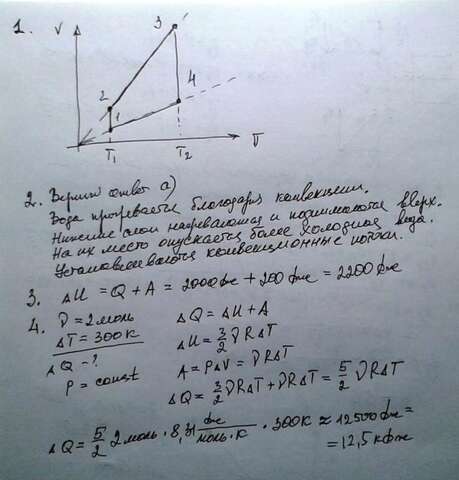 1. V
3
2
4
1
T₁ T₂ T
2. Верный ответ а)
Вода прогревается благодаря конвекции.
Нижние слои нагреваются и поднимаются вверх.
На их место опускается более холодная вода.
Устанавливаются конвекционные потоки.
3. ΔU = Q + A = 2000 Дж + 200 Дж = 2200 Дж
4. ν = 2 моль ΔQ = ΔU + A
ΔT = 300 К ΔU = 3/2 νRΔT
ΔQ - ? A = PΔV = νRΔT
P = const ΔQ = 3/2 νRΔT + νRΔT = 5/2 νRΔT
ΔQ = 5/2 2 моль · 8,31 Дж/моль·К · 300 К ≈ 12500 Дж =
= 12,5 кДж